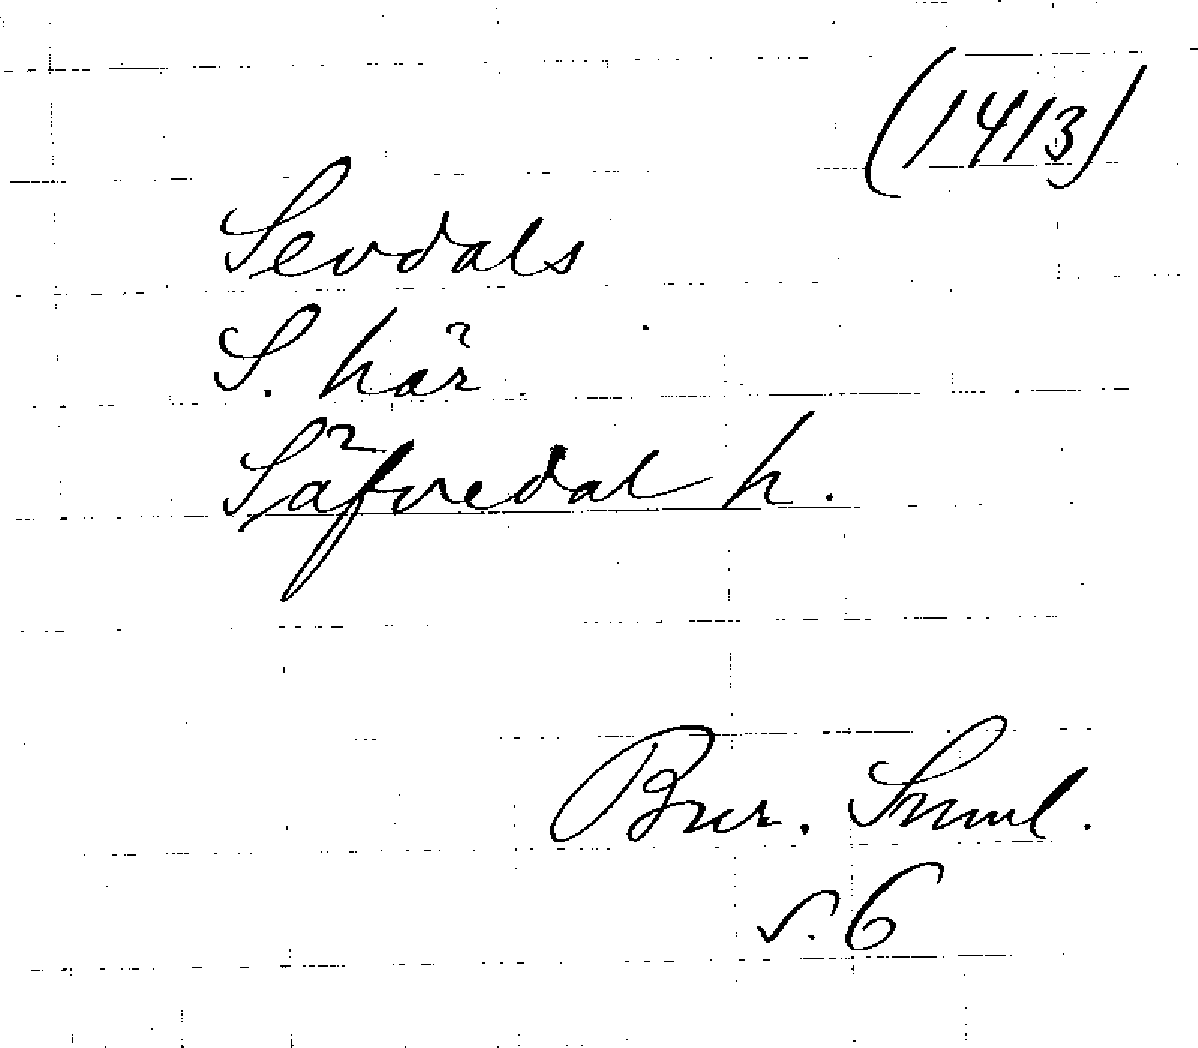 (1413)
Sevdals
S. här
Säfvedal h.
Bur. Smml.
s. 6